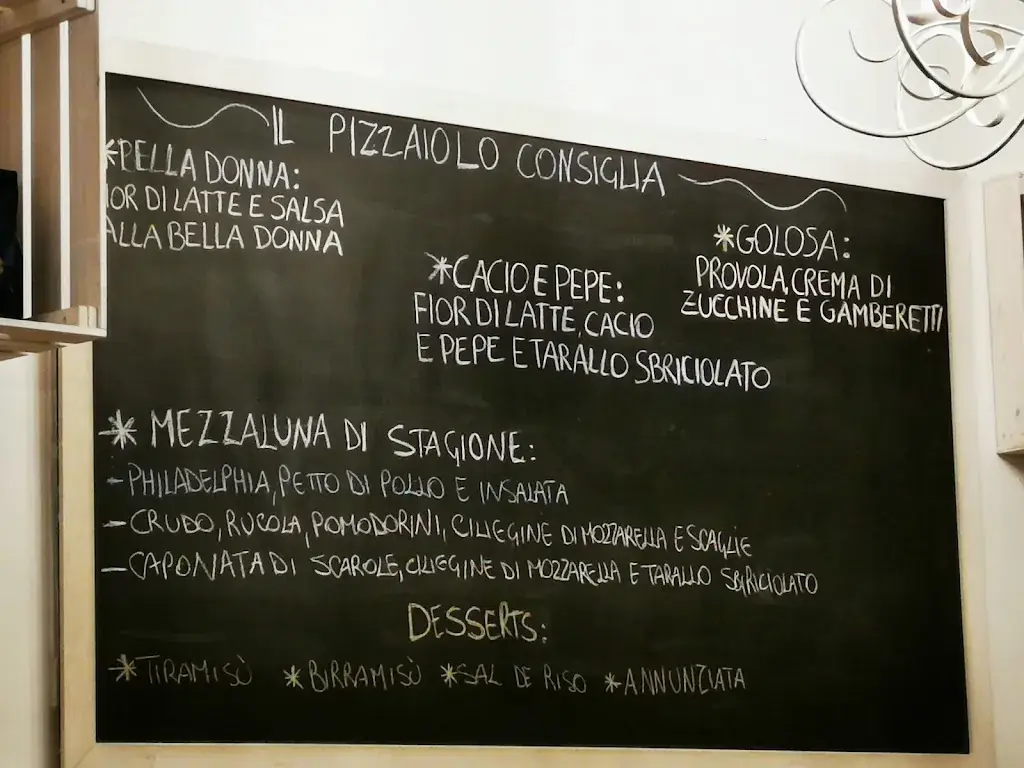 IL PIZZAIOLO CONSIGLIA
*BELLA DONNA:
IOR DI LATTE E SALSA
ALLA BELLA DONNA
*CACIO E PEPE:
FIOR DI LATTE, CACIO
E PEPE E TARALLO SBRICIOLATO
*GOLOSA:
PROVOLA, CREMA DI
ZUCCHINE E GAMBERETTI
* MEZZALUNA DI STAGIONE:
- PHILADELPHIA, PETTO DI POLLO E INSALATA
- CRUDO, RUCOLA, POMODORINI, CILIEGINE DI MOZZARELLA E SCAGLIE
- CAPONATA DI SCAROLE, CILIEGINE DI MOZZARELLA E TARALLO SBRICIOLATO
DESSERTS:
*TIRAMISÙ *BIRRAMISÙ *SAL DE RISO *ANNUNZIATA